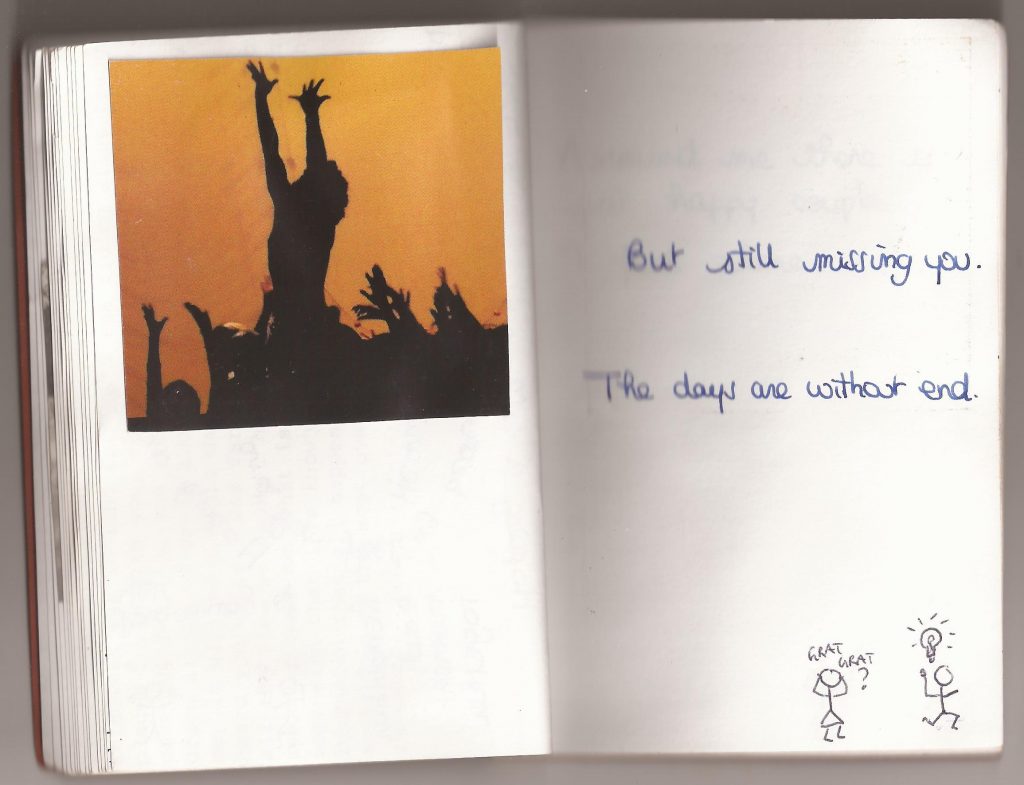 But still missing you.
The days are without end.
GRAT
GRAT
?